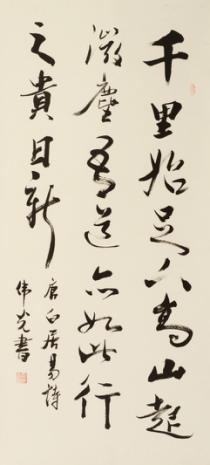 千里始足下高山起
微塵吾道亦如此行
之貴日新
唐白居易詩
伟光書